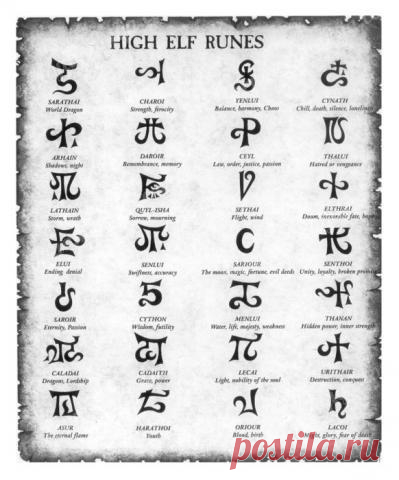 HIGH ELF RUNES
SARATHAI CHAROI YENLUI CYNATH
World Dragon Strength, ferocity Balance, harmony, Chaos Chill, death, silence, loneliness
ARHAIN DAROIR CEYL THALUI
Shadows, night Remembrance, memory Law, order, justice, passion Hatred or vengeance
LATHAIN QUYL-ISHA SETHAI ELTHRAI
Storm, wrath Sorrow, mourning Flight, wind Doom, inexorable fate, hope
ELUI SENLUI SARIOUR SENTHOI
Ending, denial Swiftness, accuracy The moon, magic, fortune, evil deeds Unity, loyalty, broken promise
SAROIR CYTHON MENLUI THANAN
Eternity, Passion Wisdom, futility Water, life, majesty, weakness Hidden power, inner strength
CALADAI CADAITH LECAI URITHAIR
Dragons, Lordship Grace, power Light, nobility of the soul Destruction, conquest
ASUR HARATHOI ORIOUR LACOI
The eternal flame Youth Blood, birth glory, fear of death
postila.ru